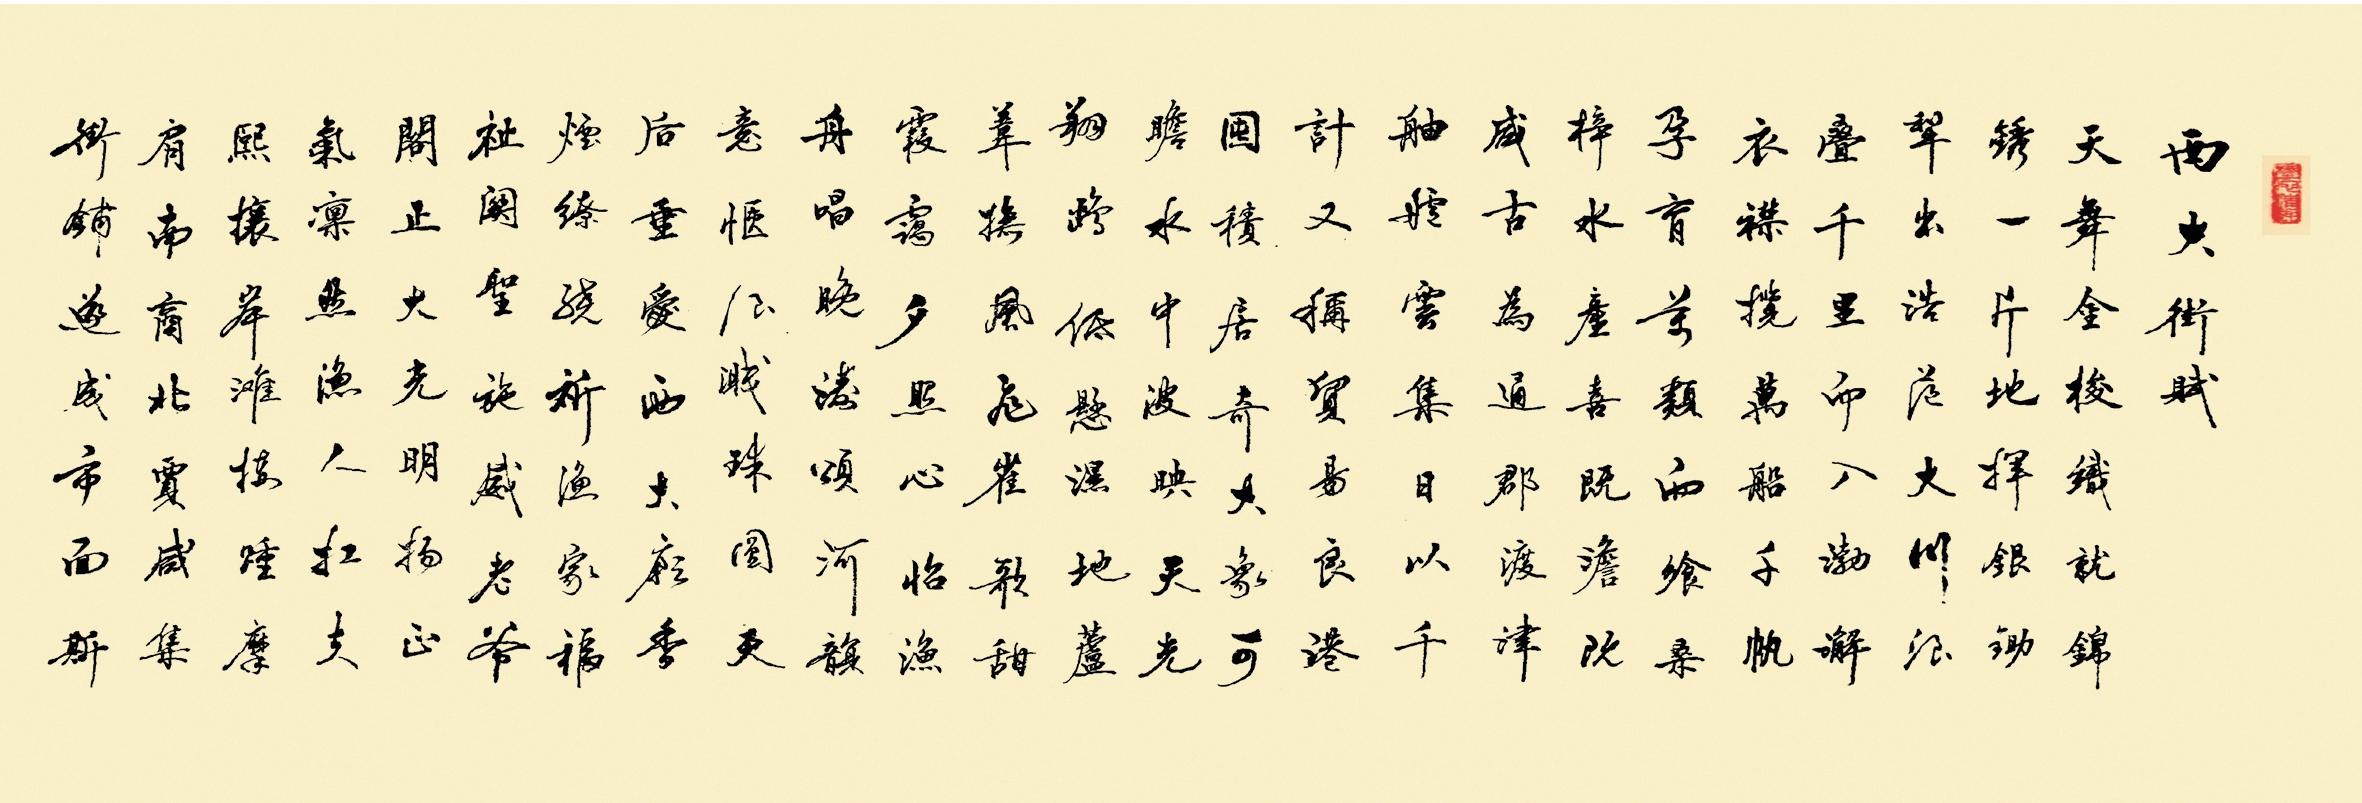 西大街賦
天舞金梭織就錦
銹一片地揮銀鋤
犁出浩范大川浪
疊千里而入渤澥
衣襟攬萬船千帆
孕育萬類而飨桑
梓水產喜既澹既
咸古為通郡渡津
舳艫雲集日以千
計又稱貿易良港
囤積居奇大象可
瞻水中波映天光
翔鷗低懸濕地蘆
葦拂風飛雀歌甜
霞靄夕照心怡漁
舟唱晚濤頌河韻
意惬浪濺珠圓更
后重愛西大廟香
煙缭繞祈漁家福
祉闕聖施威老爷
閣止大光明扬正
氣凛然漁人扛夫
熙攘岸滩接踵摩
肩南商北賈咸集
街鋪遂成市面斯